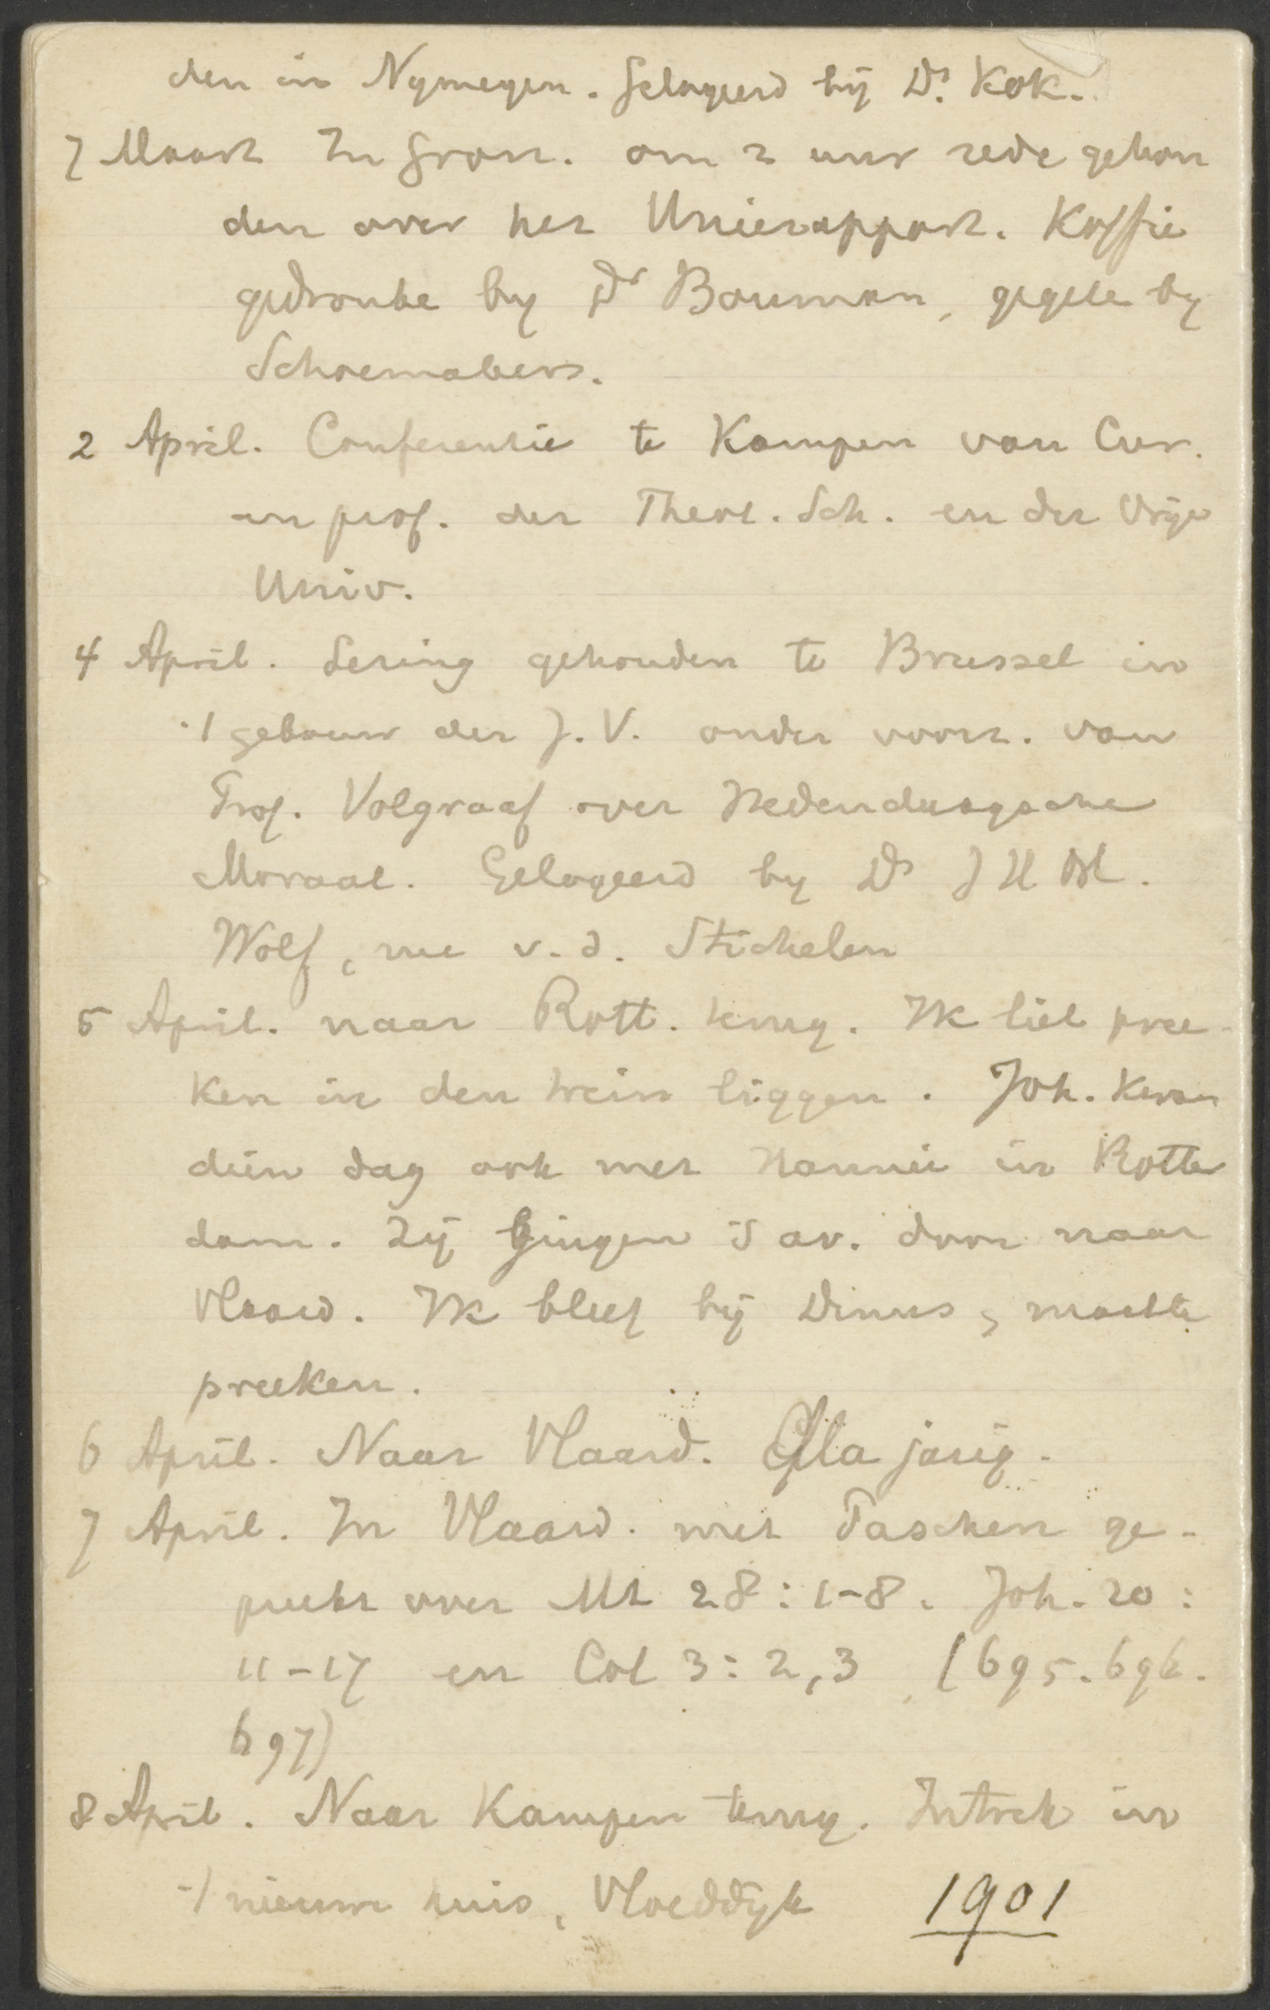 den in Nymegen. Gelogeerd bij Ds. Kok.
7 Maart In Gron. om 2 uur rede gehou
den over het Unierapport. Koffie
gedronke by Dr Bouman, gegete by
Schoemakers.
2 April. Conferentie te Kampen van Cur.
en prof. der Theol. Sch. en der Vrije
Univ.
4 April. Lezing gehouden te Brussel in
't gebouw der J.V. onder voorz. van
Prof. Volgraaf over Hedendaagsche
Moraal. Gelogeerd by Ds J H
Wolf, rue v.d. Stichelen
5 April. naar Rott. terug. Ik liet pree
ken in den trein liggen. Joh. kwam
dien dag ook met Hannie in Rotter
dam. Zij gingen 's av. door naar
Vlaard. Ik bleef bij Dinus, maakte
preeken.
6 April. Naar Vlaard. jarig.
7 April. In Vlaard. met Paschen ge-
preekt over Mt 28:1-8. Joh. 20:
11-17 en Col 3:2,3 (695. 696.
697)
8 April. Naar Kampen terug. Intrek in
't nieuwe huis, Vloeddijk 1901